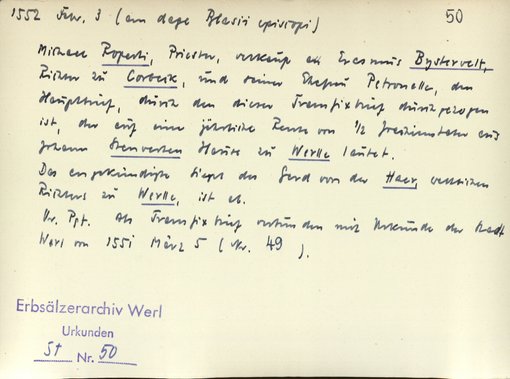 1552 Febr. 3 (am dage Blasii episcopi)
50
Michael Roperti, Priester, verkauft an Erasmus Bystervelt,
Richter zu Corbeik, und seiner Ehefrau Petronella, den
Hauptbrief, durch den dieser Transfixbrief durchgezogen
ist, der auf eine jährliche Rente von 1/2 aus
Johann Hause zu Werlle lautet.
Das angekündigte Siegel des Gerd von der Haer,
Richters zu Werlle, ist ab.
Or. Pgt. Als Transfixbrief verbunden mit Urkunde der Stadt
Werl von 1551 März 5 (Nr. 49).
Erbsälzerarchiv Werl
Urkunden
St Nr. 50